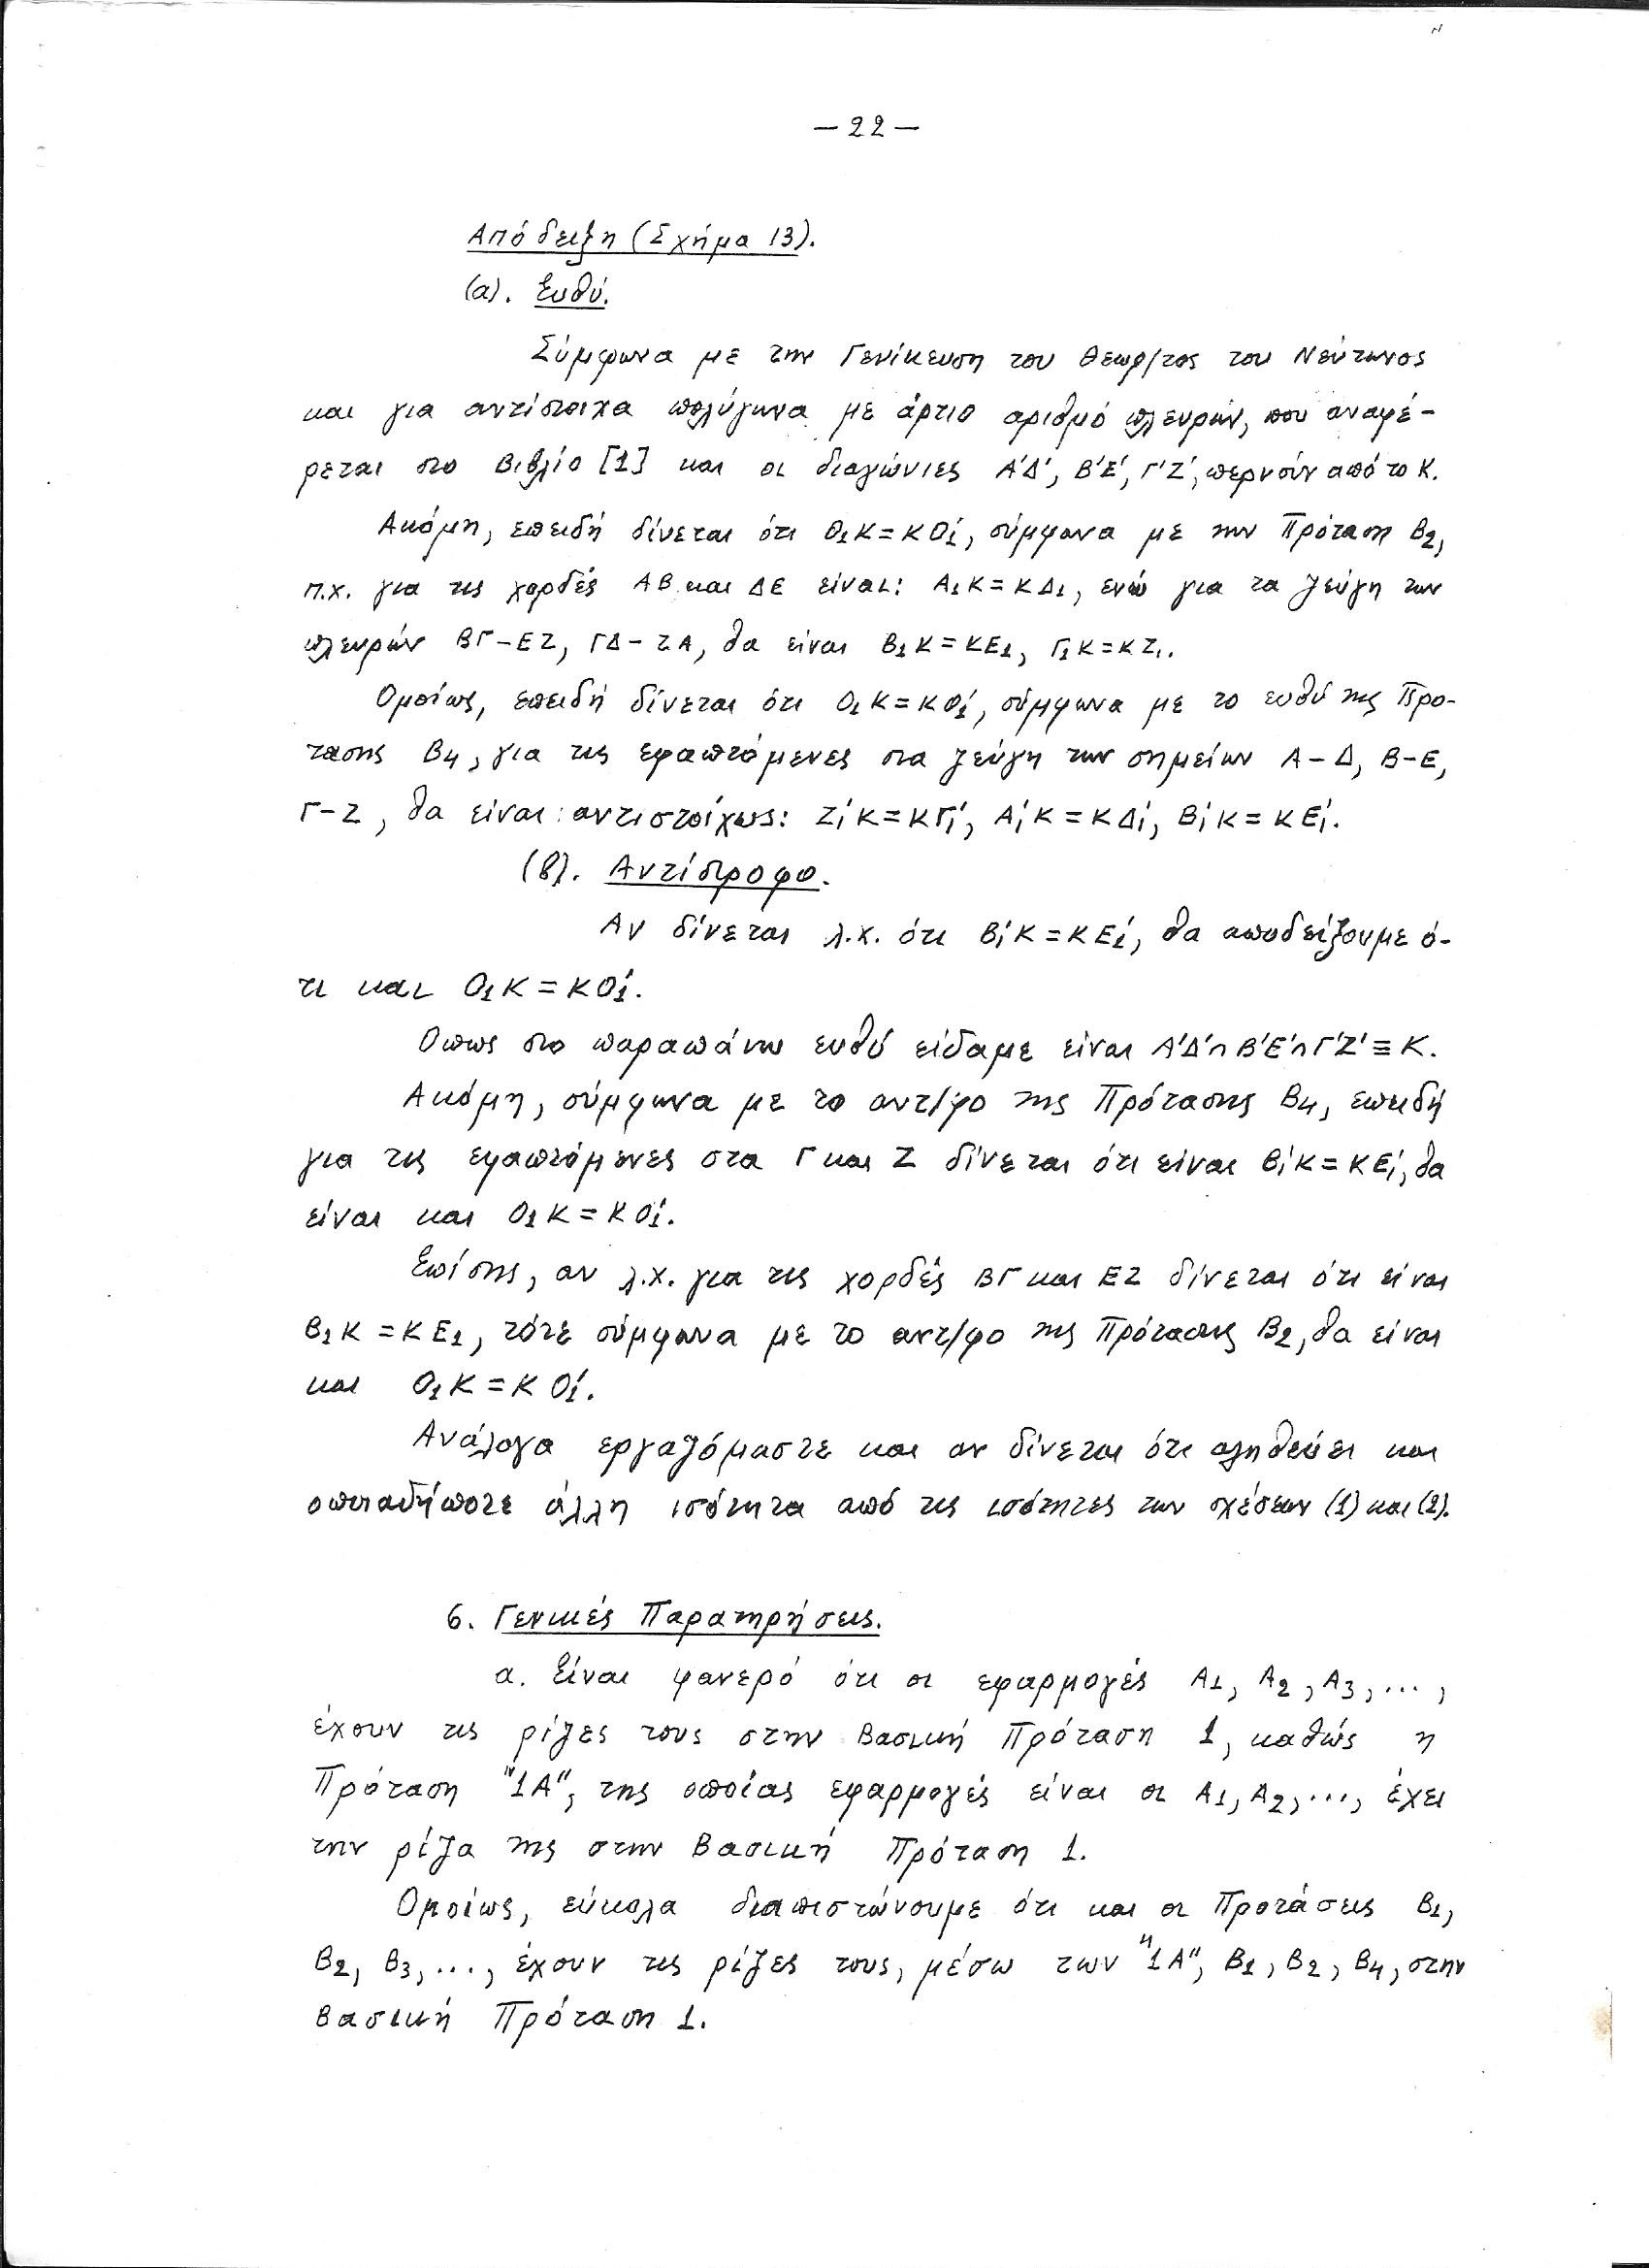 — 22 —
Απόδειξη (Σχήμα 13).
(α). Ευθύ.
Σύμφωνα με την Γενίκευση του Θεωρ/τος του Νεύτωνος
και για αντίστοιχα πολύγωνα με άρτιο αριθμό πλευρών, που αναφέ-
ρεται στο Βιβλίο [1] και οι διαγώνιες Α'Δ', Β'Ε', Γ'Ζ', περνούν από το Κ.
Ακόμη, επειδή δίνεται ότι Ο₁Κ = ΚΟ₁', σύμφωνα με την Πρόταση Β₂,
π.χ. για τις χορδές ΑΒ και ΔΕ είναι: Α₁Κ = ΚΔ₁, ενώ για τα ζεύγη των
πλευρών ΒΓ – ΕΖ, ΓΔ – ΖΑ, θα είναι Β₁Κ = ΚΕ₁, Γ₁Κ = ΚΖ₁.
Ομοίως, επειδή δίνεται ότι Ο₁Κ = ΚΟ₁', σύμφωνα με το ευθύ της Προ-
τασης Β₄, για τις εφαπτόμενες στα ζεύγη των σημείων Α – Δ, Β – Ε,
Γ – Ζ, θα είναι αντιστοίχως: Ζ₁'Κ = ΚΓ₁', Α₁'Κ = ΚΔ₁', Β₁'Κ = ΚΕ₁'.
(β). Αντίστροφο.
Αν δίνεται λ.χ. ότι Β₁'Κ = ΚΕ₁', θα αποδείξουμε ό-
τι και Ο₁Κ = ΚΟ₁'.
Οπως στο παραπάνω ευθύ είδαμε είναι Α'Δ'∩Β'Ε'∩Γ'Ζ' ≡ Κ.
Ακόμη, σύμφωνα με το αντ/φο της Πρότασης Β₄, επειδή
για τις εφαπτόμενες στα Γ και Ζ δίνεται ότι είναι Β₁'Κ = ΚΕ₁', θα
είναι και Ο₁Κ = ΚΟ₁'.
Επίσης, αν λ.χ. για τις χορδές ΒΓ και ΕΖ δίνεται ότι είναι
Β₁Κ = ΚΕ₁, τότε σύμφωνα με το αντ/φο της Πρότασης Β₂, θα είναι
και Ο₁Κ = ΚΟ₁'.
Ανάλογα εργαζόμαστε και αν δίνεται ότι αληθεύει και
οποιαδήποτε άλλη ισότητα από τις ισότητες των σχέσεων (1) και (2).
6. Γενικές Παρατηρήσεις.
α. Είναι φανερό ότι οι εφαρμογές Α₁, Α₂, Α₃, ...,
έχουν τις ρίζες τους στην Βασική Πρόταση 1, καθώς η
Πρόταση "1Α", της οποίας εφαρμογές είναι οι Α₁, Α₂, ..., έχει
την ρίζα της στην Βασική Πρόταση 1.
Ομοίως, εύκολα διαπιστώνουμε ότι και οι Προτάσεις Β₁,
Β₂, Β₃, ..., έχουν τις ρίζες τους, μέσω των "1Α", Β₁, Β₂, Β₄, στην
Βασική Πρόταση 1.